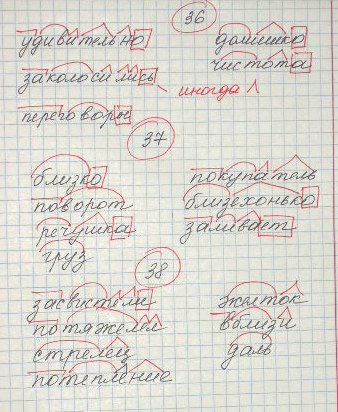 36
удивительно
домишко
заколосились
чистота
иногда
переговоры
37
близко
покупатель
поворот
близехонько
речушка
заливает
груз
38
засвистели
желток
потяжелел
вблизи
стрелец
даль
потепление